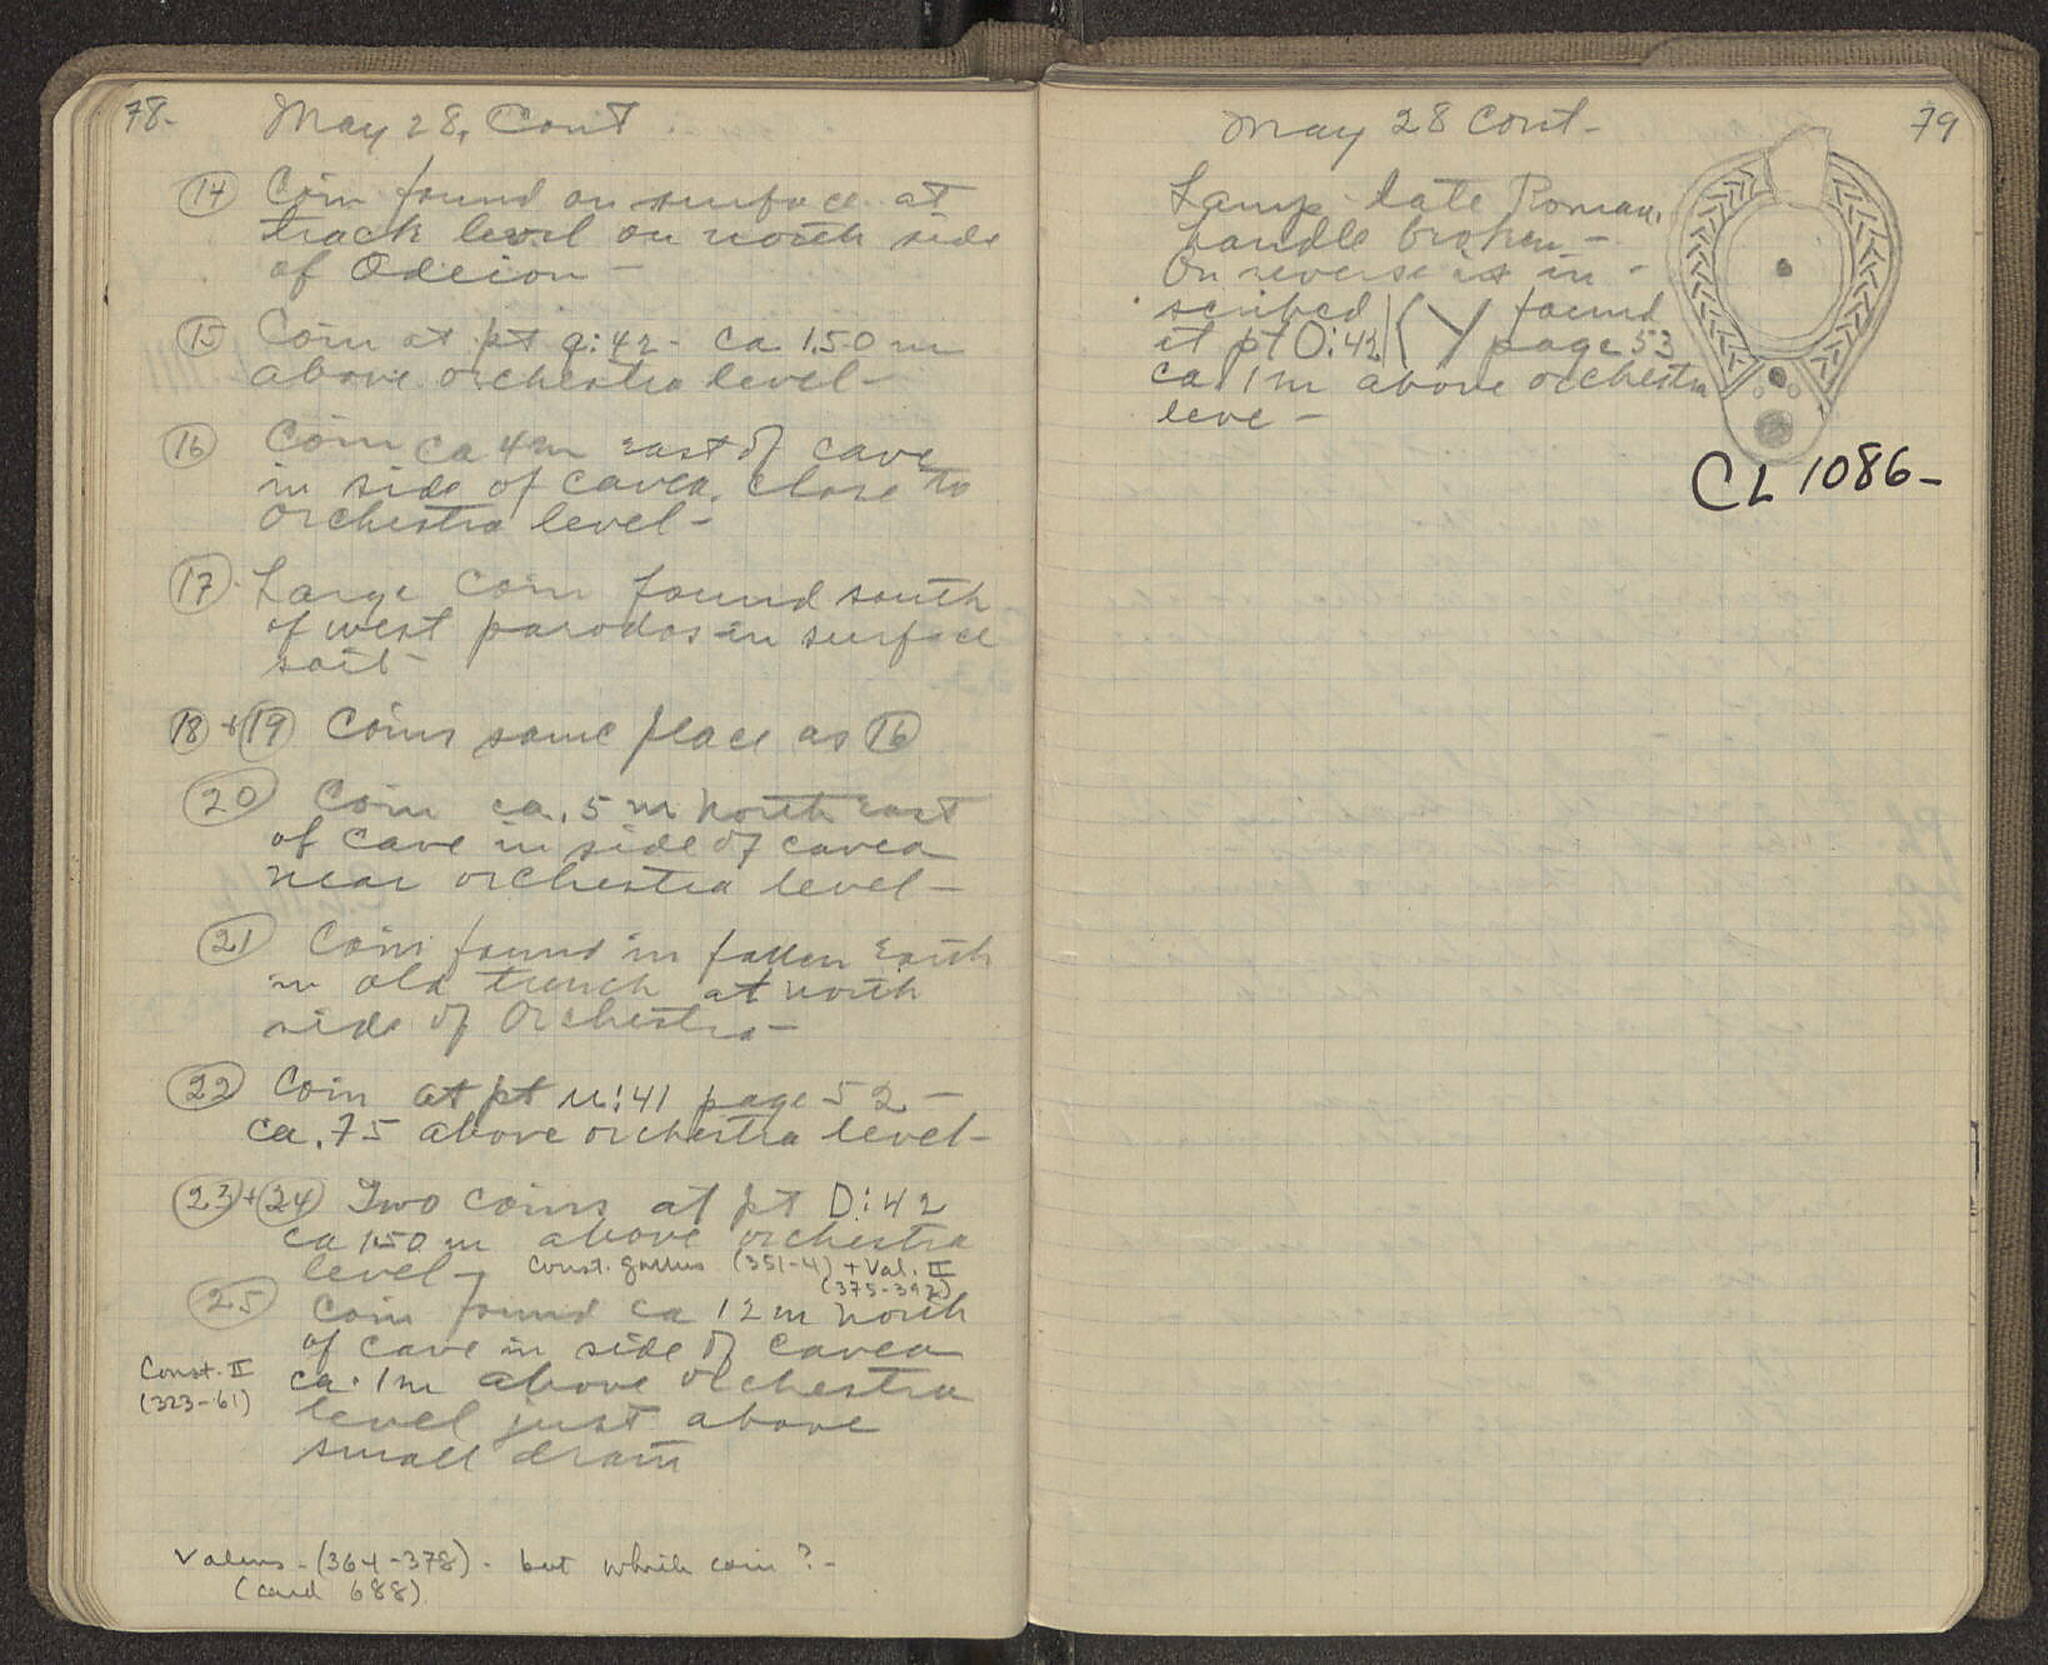 78-
May 28, Cont.
(14) Coin found on surface at
track level on north side
of Odeion -
(15) Coin at pt q:42 - ca 1.50 m
above orchestra level -
(16) Coin ca 4m east of cave
in side of cavea. close to
orchestra level -
(17) Large coin found south
of west parodos in surface
soil -
(18) + (19) Coins same place as (16)
(20) Coin ca. 5 m north east
of cave in side of cavea
near orchestra level -
(21) Coin found in fallen earth
in old trench at north
side of Orchestra -
(22) Coin at pt u:41 page 52 -
ca .75 above orchestra level -
(23) + (24) Two coins at pt D:42
ca 1.50 m above orchestra
level - Const. Gallus (351-4) + Val. II
(375-392)
(25) Coin found ca 12 m north
of cave in side of cavea
Const. II
(323-61)
ca. 1m above orchestra
level just above
small drain
Valens - (364-378) - but which coin? -
(card 688)
May 28 Cont - 79
Lamp - late Roman,
handle broken -
On reverse is in -
scribed found
at pt O:42 page 53
ca. 1m above orchestra
leve -
CL 1086 -